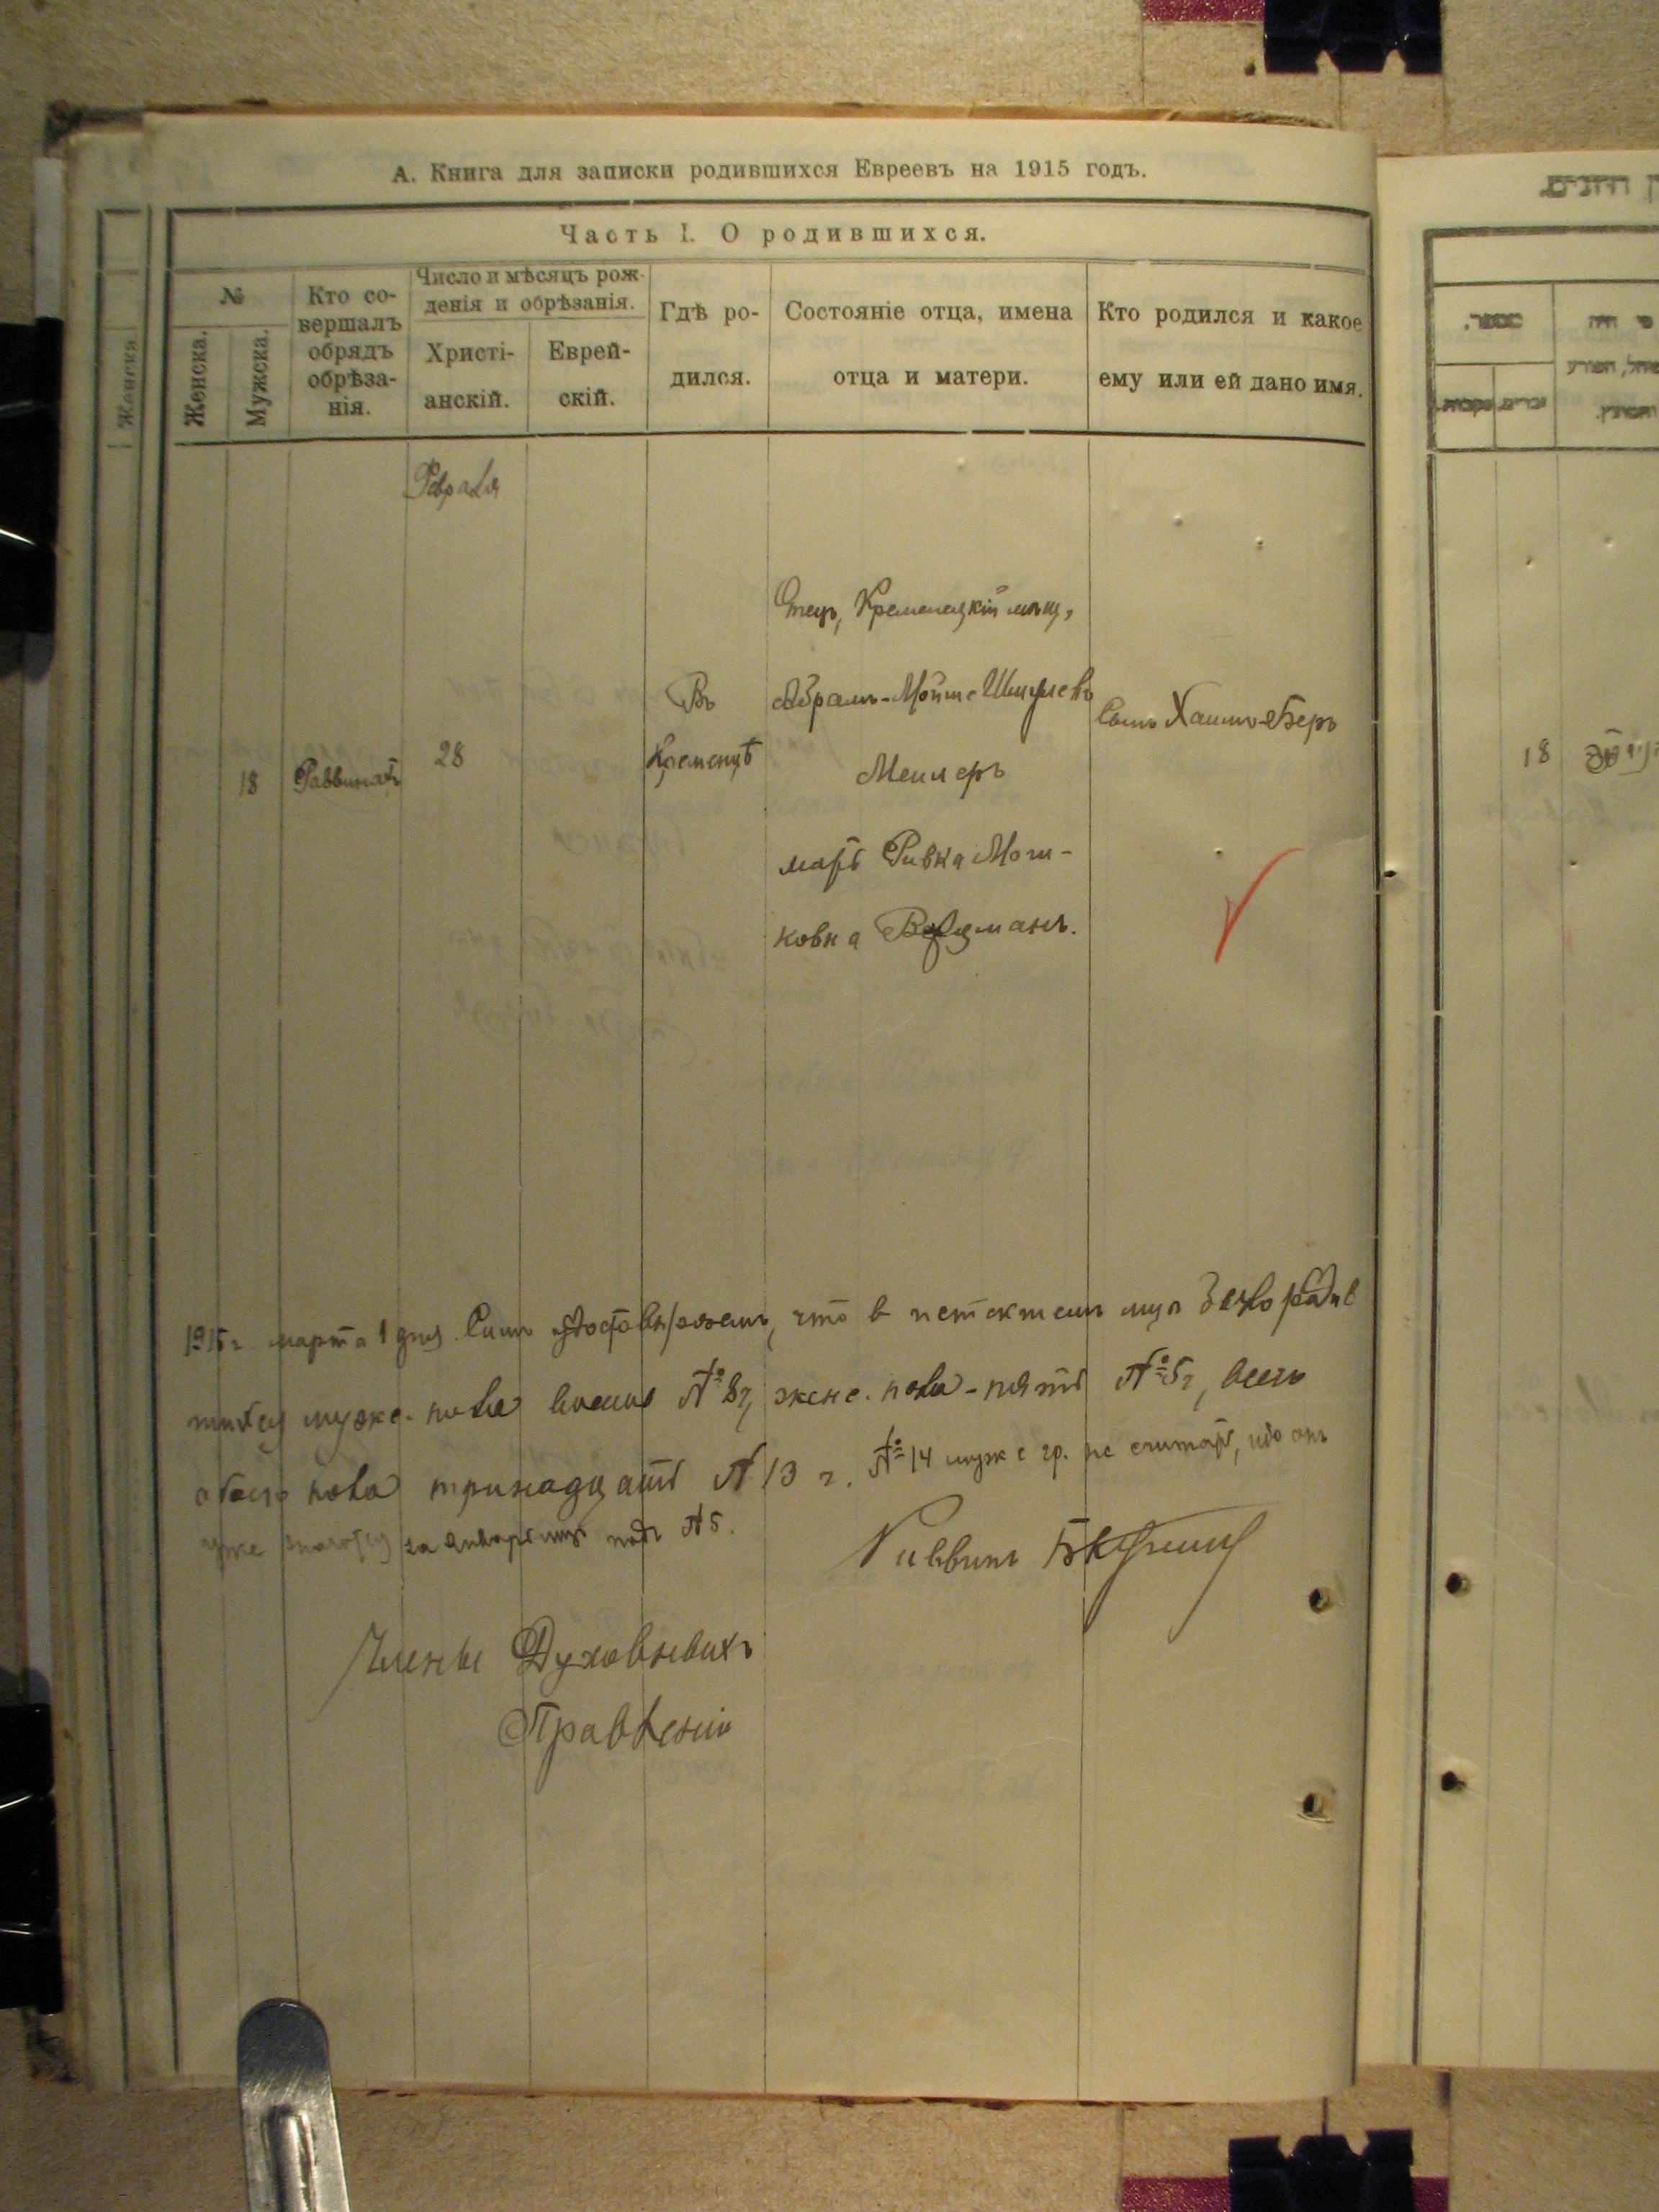 А. Книга для записки родившихся Евреевъ на 1915 годъ.
Часть I. О родившихся.
№
Женска.
Мужска.
Кто со-
вершалъ
обрядъ
обрѣза-
нія.
Число и мѣсяцъ рож-
денія и обрѣзанія.
Христі-
анскій.
Еврей-
скій.
Гдѣ ро-
дился.
Состояніе отца, имена
отца и матери.
Кто родился и какое
ему или ей дано имя.
Женска.
Февраля
18
Раввинатъ
28
Въ
Кременцѣ
Отецъ, Кременецкій мѣщ,
Абрамъ-Мойше
Мейлеръ
мать Ривка Мош-
ковна
Сынъ Хаимъ-Беръ
1915 г. марта 1 дня. Симъ что в истекшемъ
муже. пола восемь № 8 г, женс. пола - пять № 5 г, всего
обоего пола тринадцать № 13 г. № 14 муж с гр. не считать, ибо онъ
уже за январь подъ № 5.
Раввинъ
Члены Духовныхъ
Правленія
18